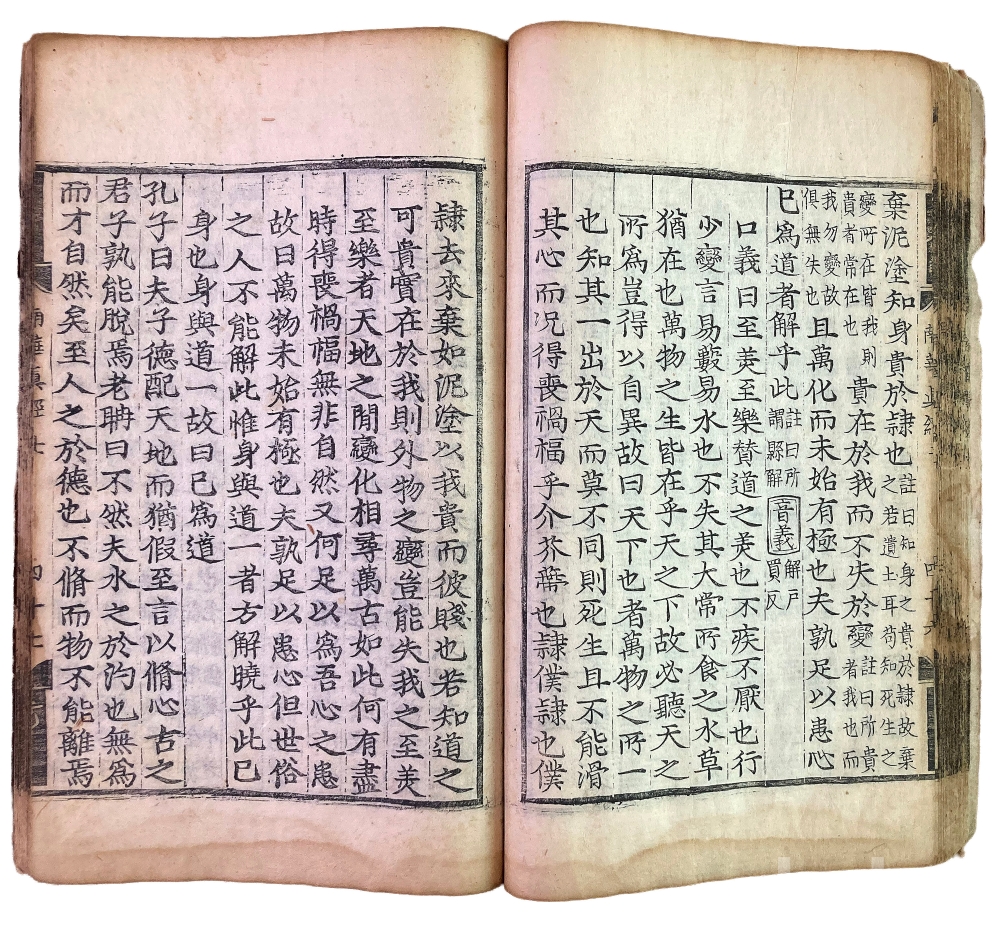 棄泥塗知身貴於隷也註曰知身之貴於隷故棄之若遺土耳苟知死生之
變所在皆我則貴者常在也貴在於我而不失於變註曰所貴者我也而
我勿變故俱無失也且萬化而未始有極也夫孰足以患心
已爲道者解乎此註曰所謂縣解音義解戶買反
口義曰至羙至樂賛道之羙也不疾不厭也行
少變言易藪易水也不失其大常所食之水草
猶在也萬物之生皆在乎天之下故必聽天之
所爲豈得以自異故曰天下也者萬物之所一
也知其一出於天而莫不同則死生且不能滑
其心而况得喪禍福乎介芥蔕也隷僕隷也僕
隷去來棄如泥塗以我貴而彼賤也若知道之
可貴實在於我則外物之變豈能失我之至羙
至樂者天地之閒變化相尋萬古如此何有盡
時得喪禍福無非自然又何足以爲吾心之患
故曰萬物未始有極也夫孰足以患心但世俗
之人不能解此惟身與道一者方解曉乎此已
身也身與道一故曰已爲道
孔子曰夫子德配天地而猶假至言以脩心古之
君子孰能脫焉老聃曰不然夫水之於汋也無爲
而才自然矣至人之於德也不脩而物不能離焉
南華真經